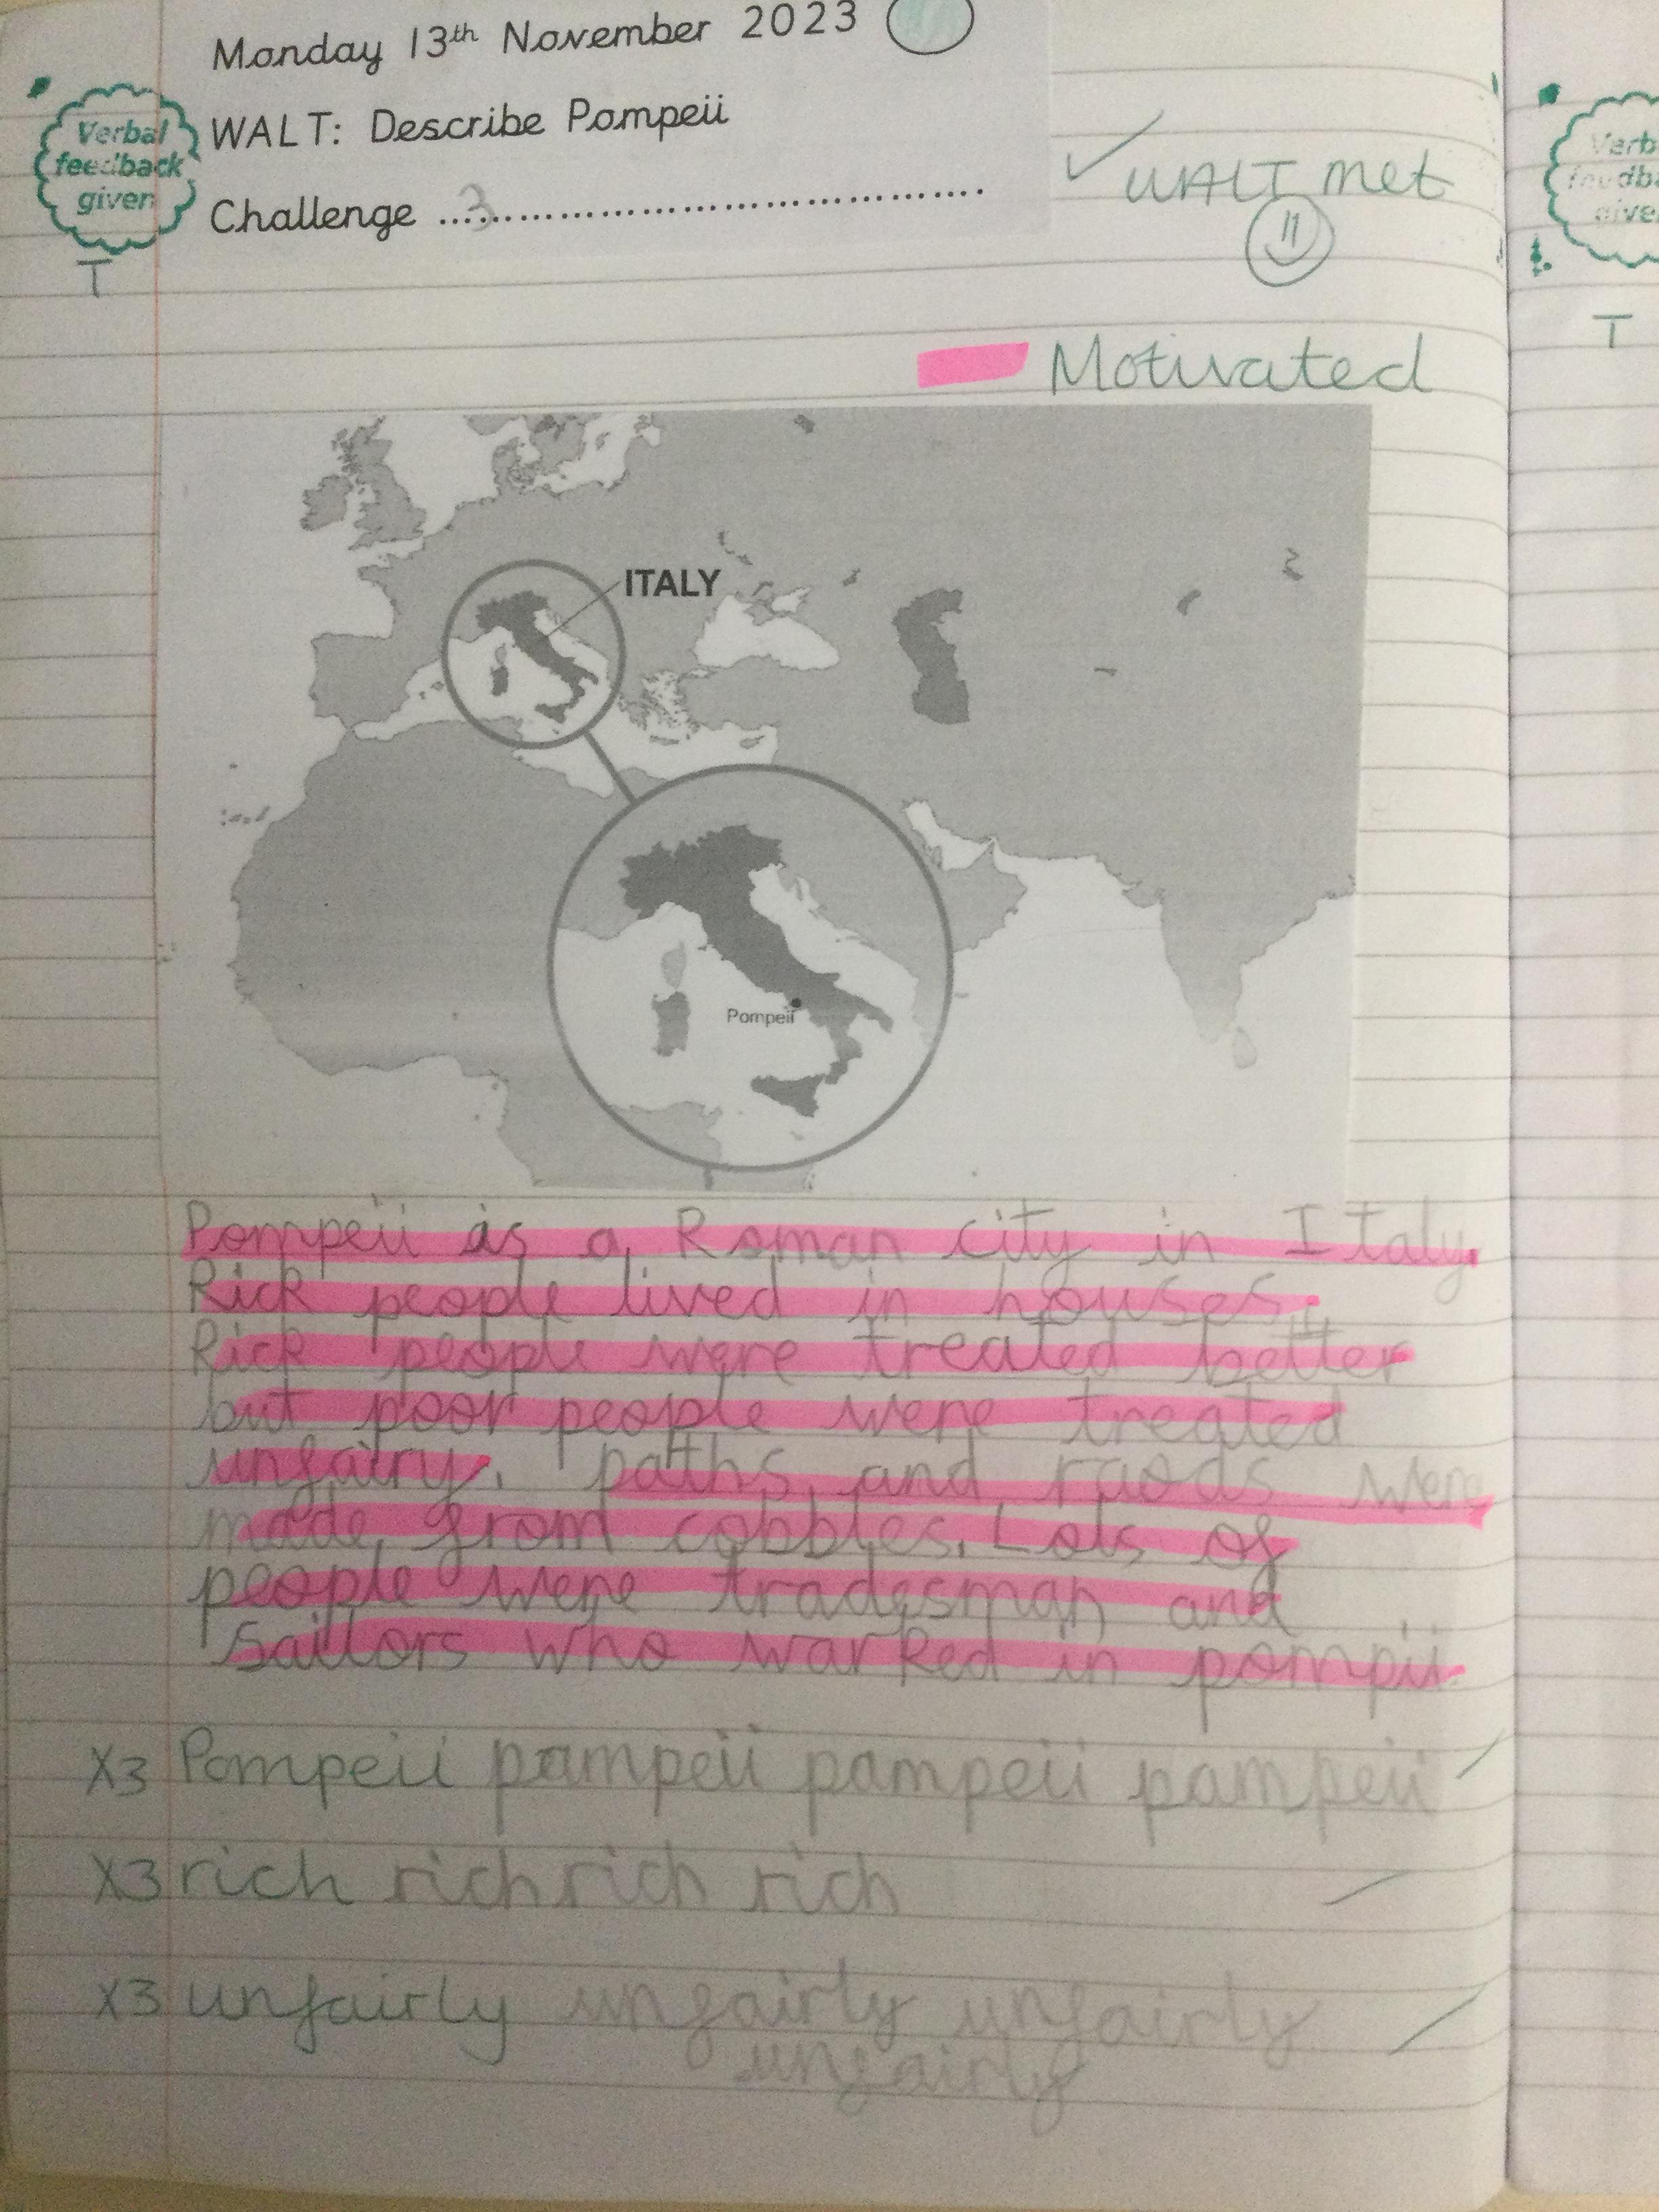 Monday 13th November 2023
Verbal
feedback
given
T
WALT: Describe Pompeii
Challenge ...3...............................................
WALT met
Motivated
ITALY
Pompeii
Pompeii is a Roman city in ITaly.
Rick people lived in houses.
Rick people were treated better
but poor people were treated
unfairy. paths and raods were
made from cobbles. Lots of
people were tradesman and
Saillors who warked in pompii.
X3 Pompeii pompeii pompeii pompeii
X3 rich rich rich rich
X3 unfairly unfairly unfairly
unfairly
T